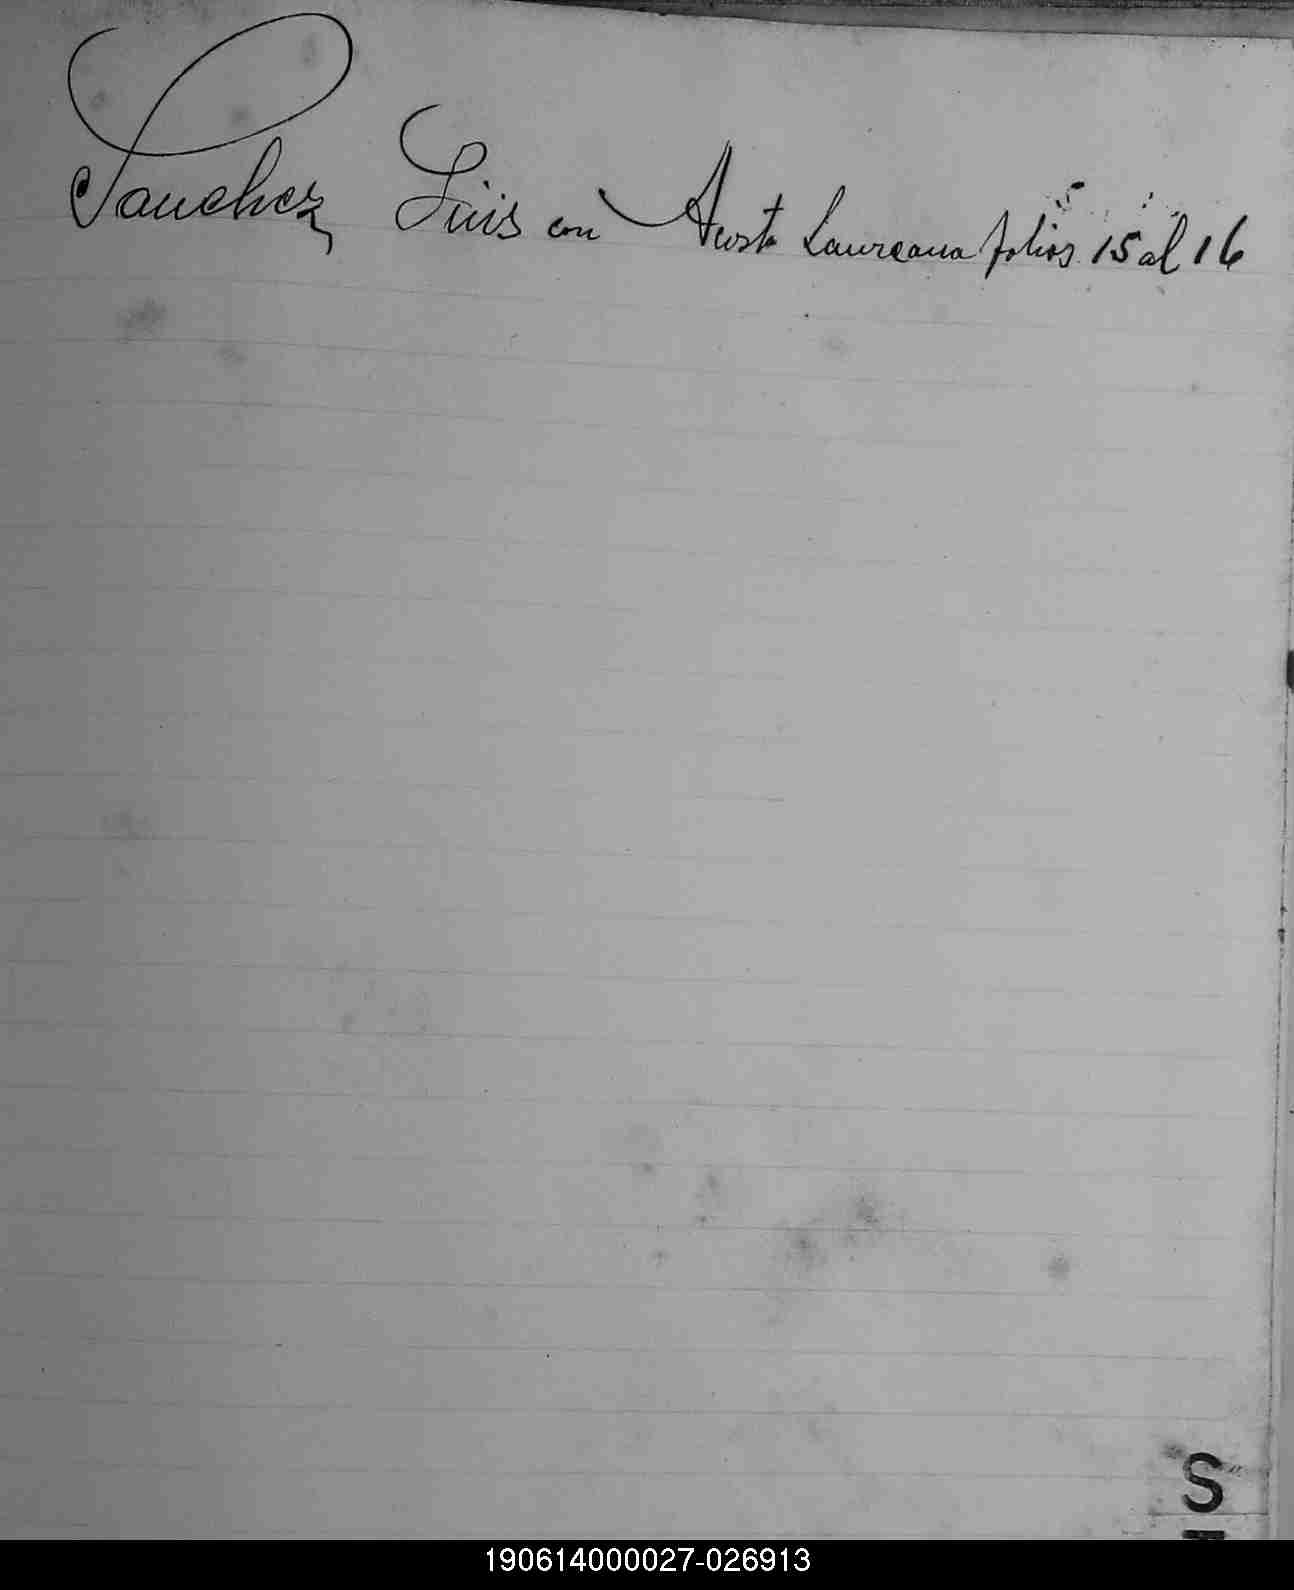 Sanchez, Luis con Acosta Laureana folios 15 al 16
S
190614000027-026913